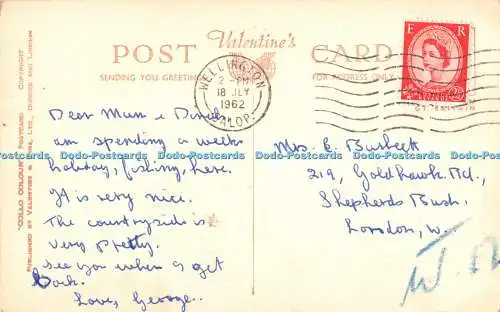 POST Valentine's CARD
SENDING YOU GREETINGS
FOR ADDRESS ONLY
WELLINGTON
2 - PM
18 JLY
1962
SALOP
E R
Dear Mum &
am spending a weeks
holiday, fishing, here.
It is very nice.
The countryside is
very pretty.
see you when I get
back.
Love, George.
Mrs. E. Burkett
219, Goldhawk Rd.,
Shepherds Bush.
London, W.
W.
"COLLO COLOUR" POSTCARD COPYRIGHT
PUBLISHED BY VALENTINE & SONS, LTD., DUNDEE AND LONDON
Dodo-Postcards Dodo-Postcards Dodo-Postcards Dodo-Postcards